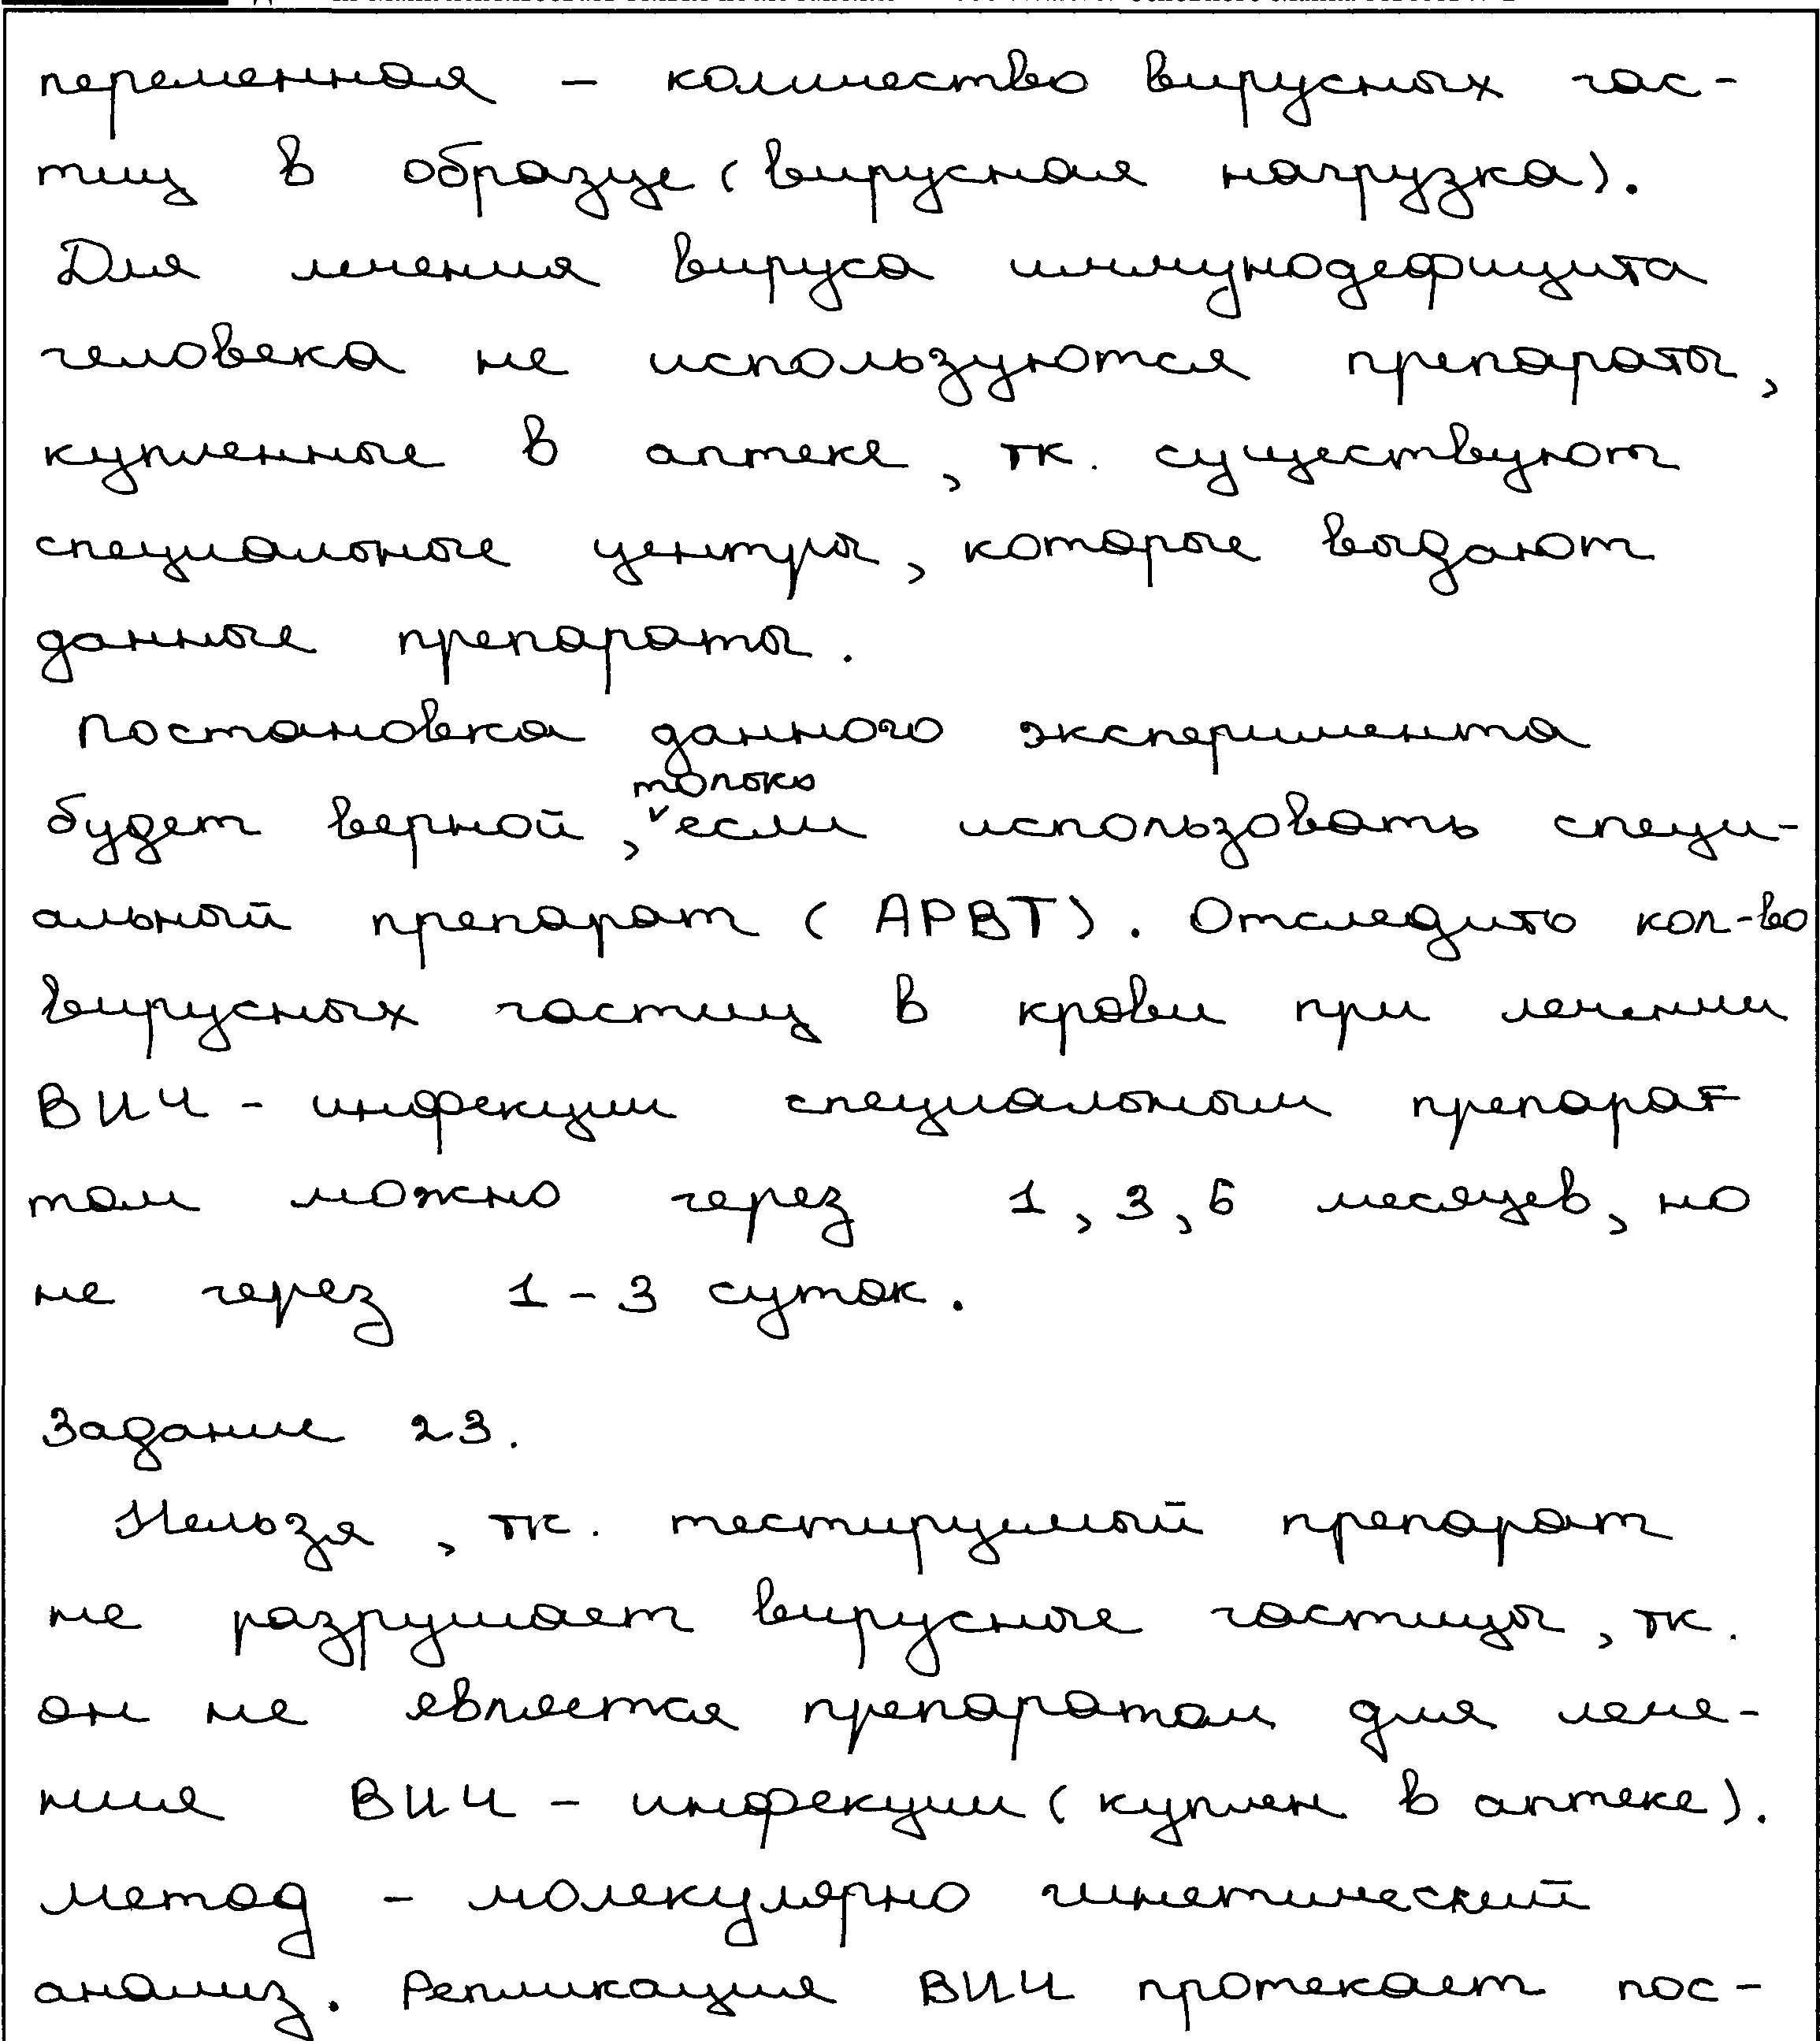 переменная – количество вирусных час-
тиц в образце (вирусная нагрузка).
Для лечения вируса иммунодефицита
человека не используются препараты,
купленные в аптеке, тк. существуют
специальные центры, которые выдают
данные препараты.
Постановка данного эксперимента
только
будет верной, если использовать специ-
альный препарат (АРВТ). Отследить кол-во
вирусных частиц в крови при лечении
ВИЧ - инфекции специальным препарат
том можно через 1, 3, 6 месяцев, но
не через 1 - 3 суток.
Задание 23.
Нельзя, тк. тестируемый препарат
не разрушает вирусные частицы, тк.
он не является препаратом для лече-
ния ВИЧ - инфекции (куплен в аптеке).
метод - молекулярно гинетический
анализ. Репликация ВИЧ протекает пос-